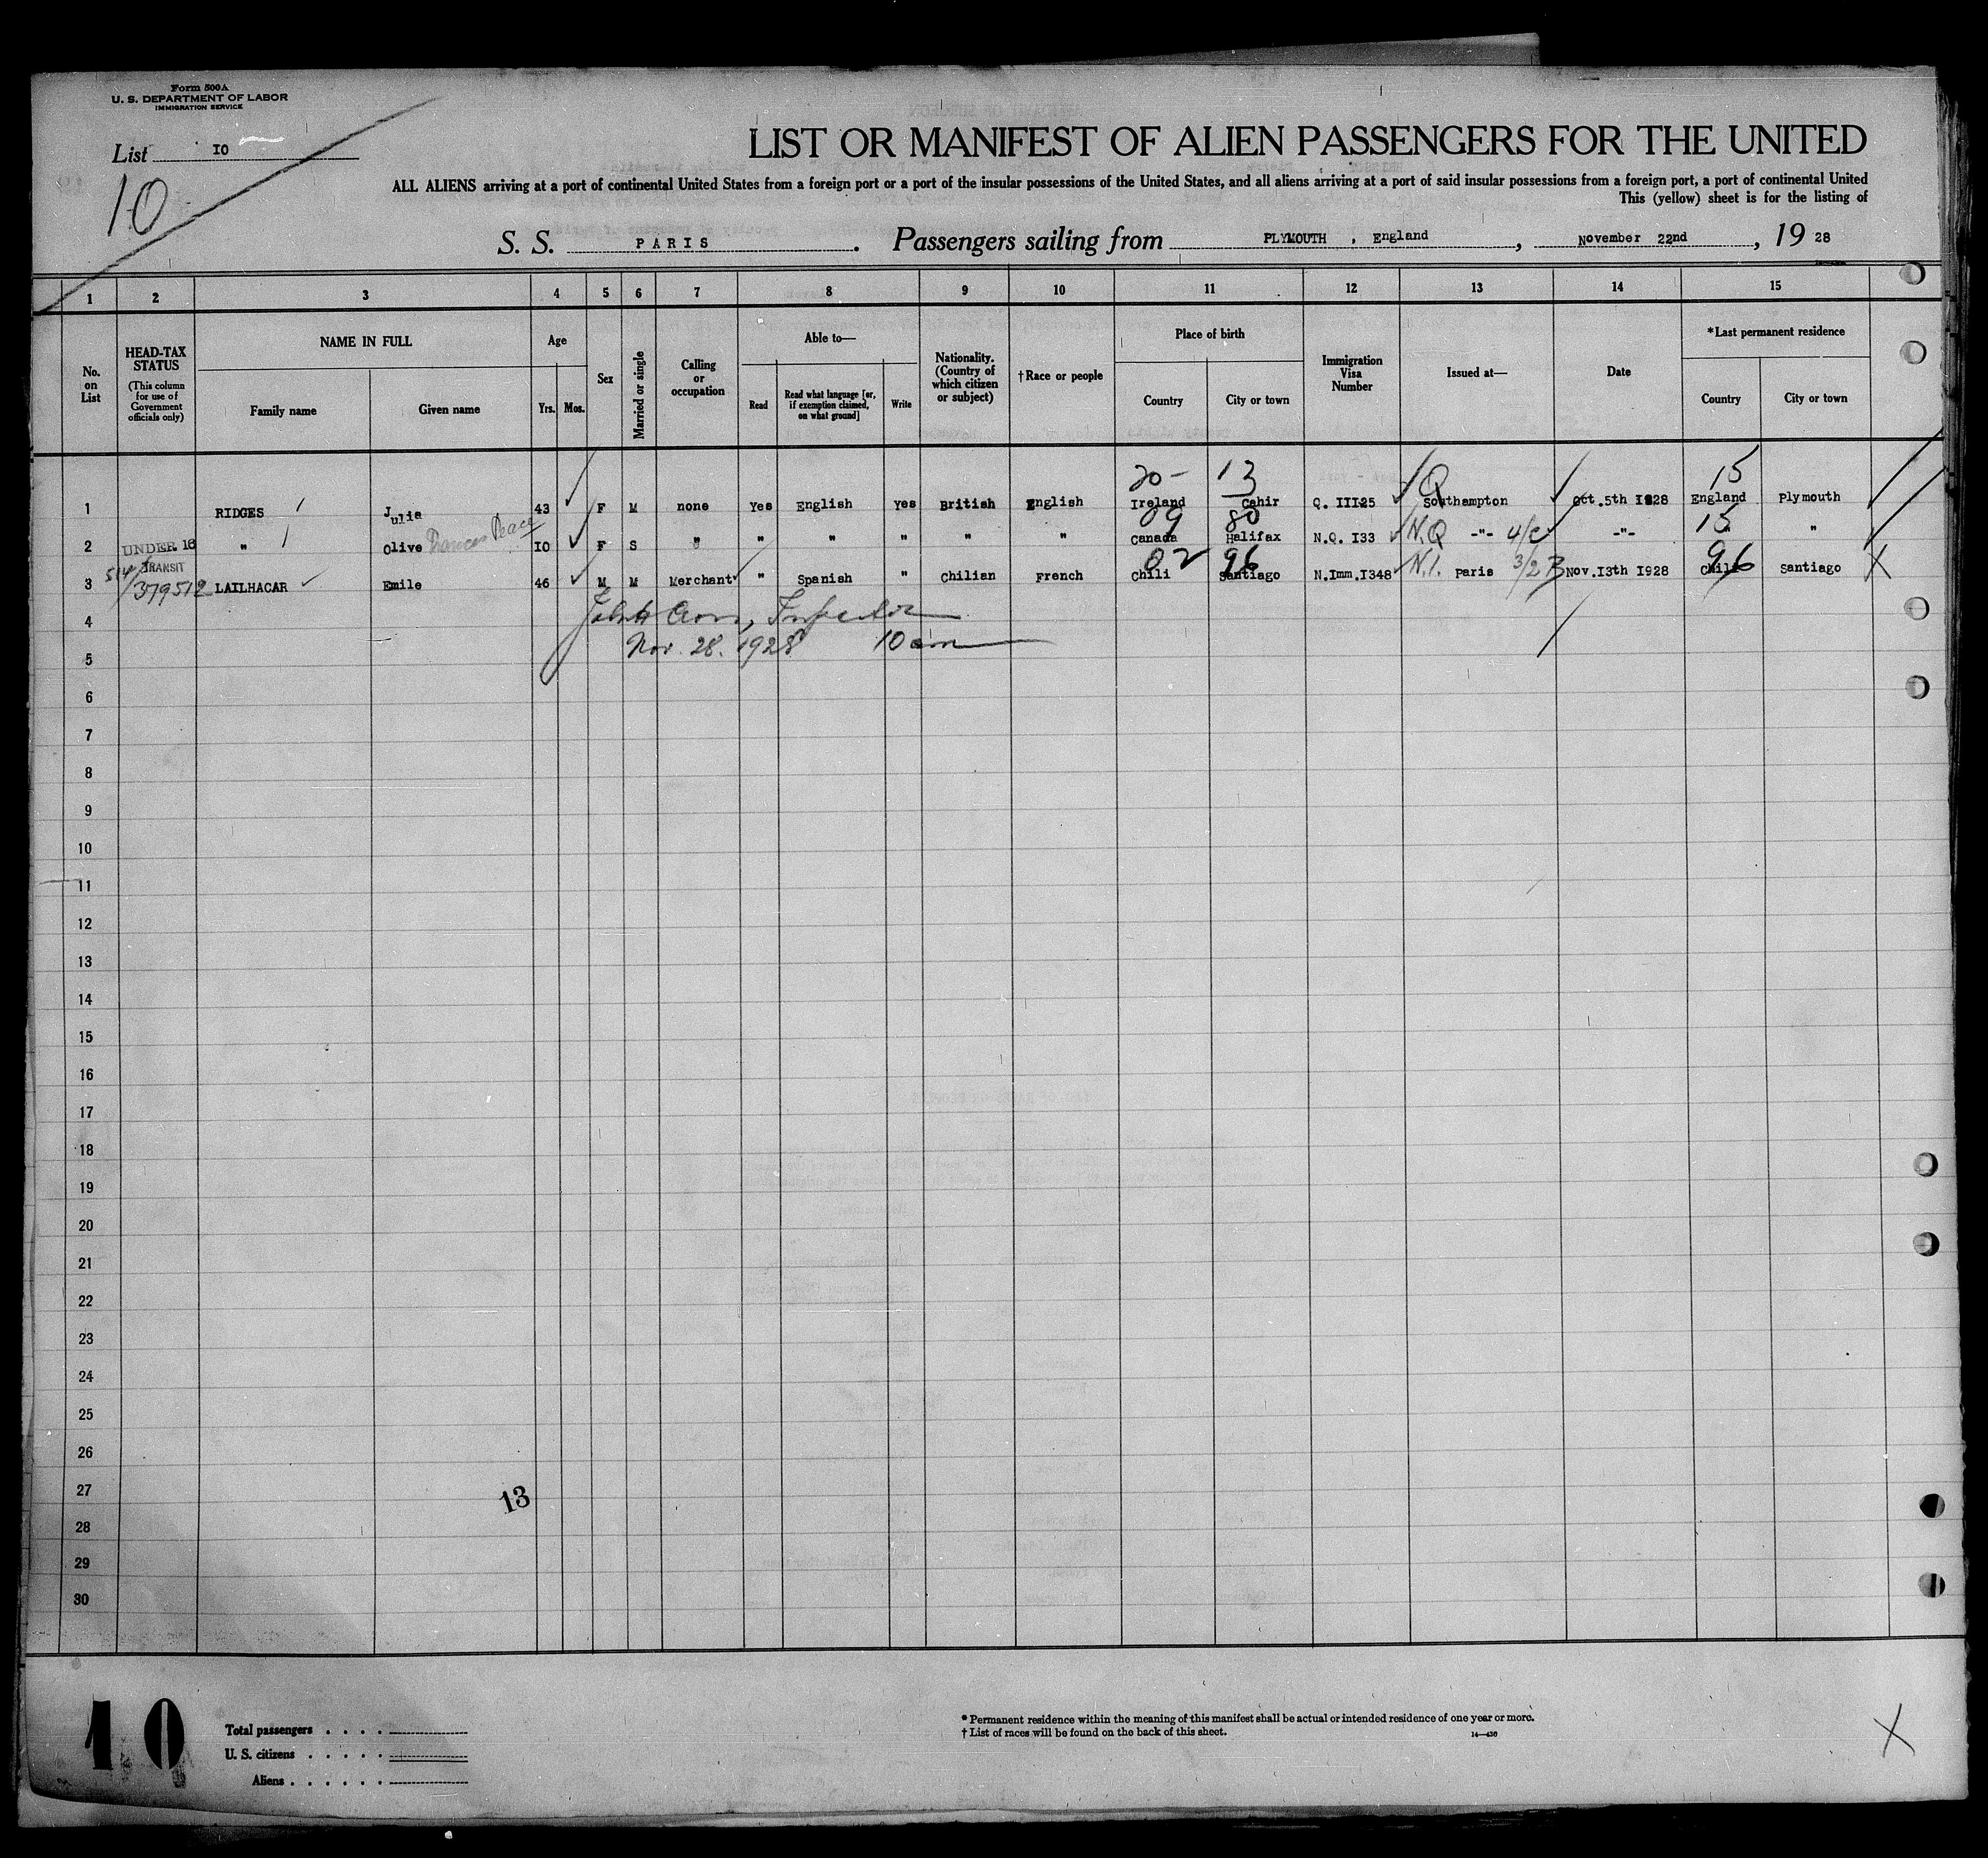 Form 500A
U. S. DEPARTMENT OF LABOR
IMMIGRATION SERVICE
List IO
10
LIST OR MANIFEST OF ALIEN PASSENGERS FOR THE UNITED
ALL ALIENS arriving at a port of continental United States from a foreign port or a port of the insular possessions of the United States, and all aliens arriving at a port of said insular possessions from a foreign port, a port of continental United
This (yellow) sheet is for the listing of
S. S. PARIS . Passengers sailing from PLYMOUTH , England , November 22nd , 19 28
1 2 3 4 5 6 7 8 9 10 11 12 13 14 15
No. on List
HEAD-TAX STATUS (This column for use of Government officials only)
NAME IN FULL
Family name Given name
Age
Yrs. Mos.
Sex
Married or single
Calling or occupation
Able to—
Read Read what language [or, if exemption claimed, on what ground] Write
Nationality. (Country of which citizen or subject)
†Race or people
Place of birth
Country City or town
Immigration Visa Number
Issued at—
Date
*Last permanent residence
Country City or town
20- 13 Q 15
1 RIDGES Julia 43 F M none Yes English Yes British English Ireland Cahir Q. III25 Southampton Oct.5th I928 England Plymouth
09 80 15
2 UNDER 16 " Olive Frances Peace IO F S " " " " " " Canada Halifax N.Q. I33 N.Q -"- 4/c -"- " "
TRANSIT 02 96 96
3 514/379512 LAILHACAR Emile 46 M M Merchant " Spanish " Chilian French Chili Santiago N.Imm.I348 N.I. Paris 3/2 B Nov.I3th I928 Chili Santiago X
4 Inspector
5 Nov. 28. 1928 10 am
6
7
8
9
10
11
12
13
14
15
16
17
18
19
20
21
22
23
24
25
26
27 13
28
29
30
10
Total passengers . . . .
U. S. citizens . . . . .
Aliens . . . . . .
* Permanent residence within the meaning of this manifest shall be actual or intended residence of one year or more.
† List of races will be found on the back of this sheet.
14—430
X